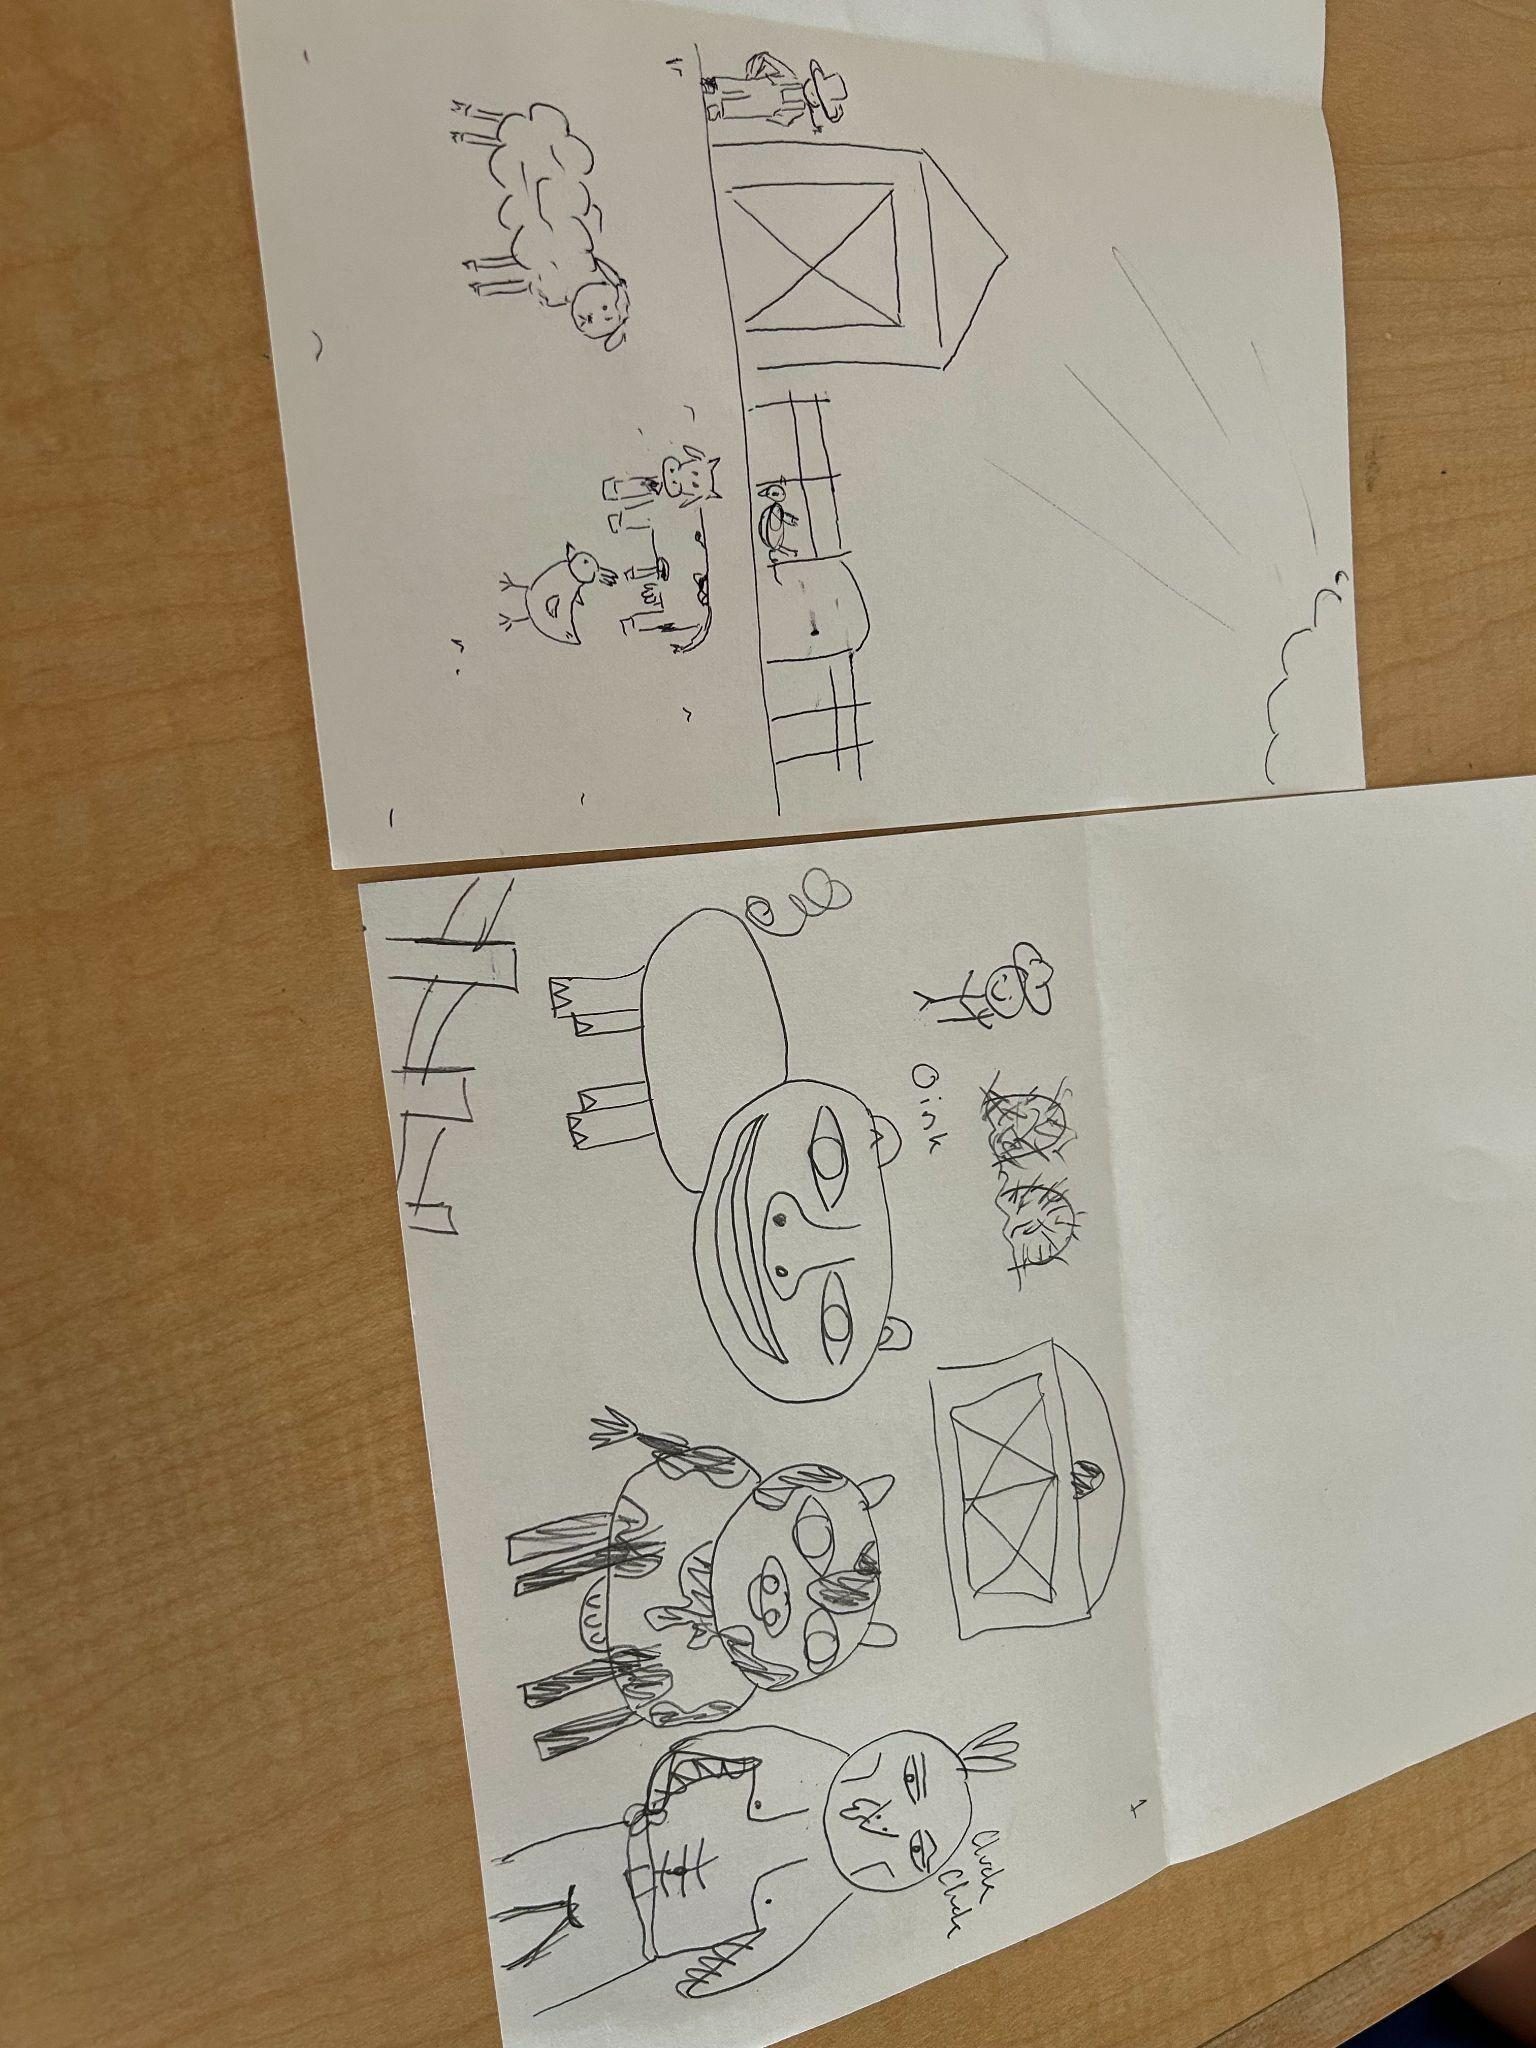 Oink
Cluck
Cluck